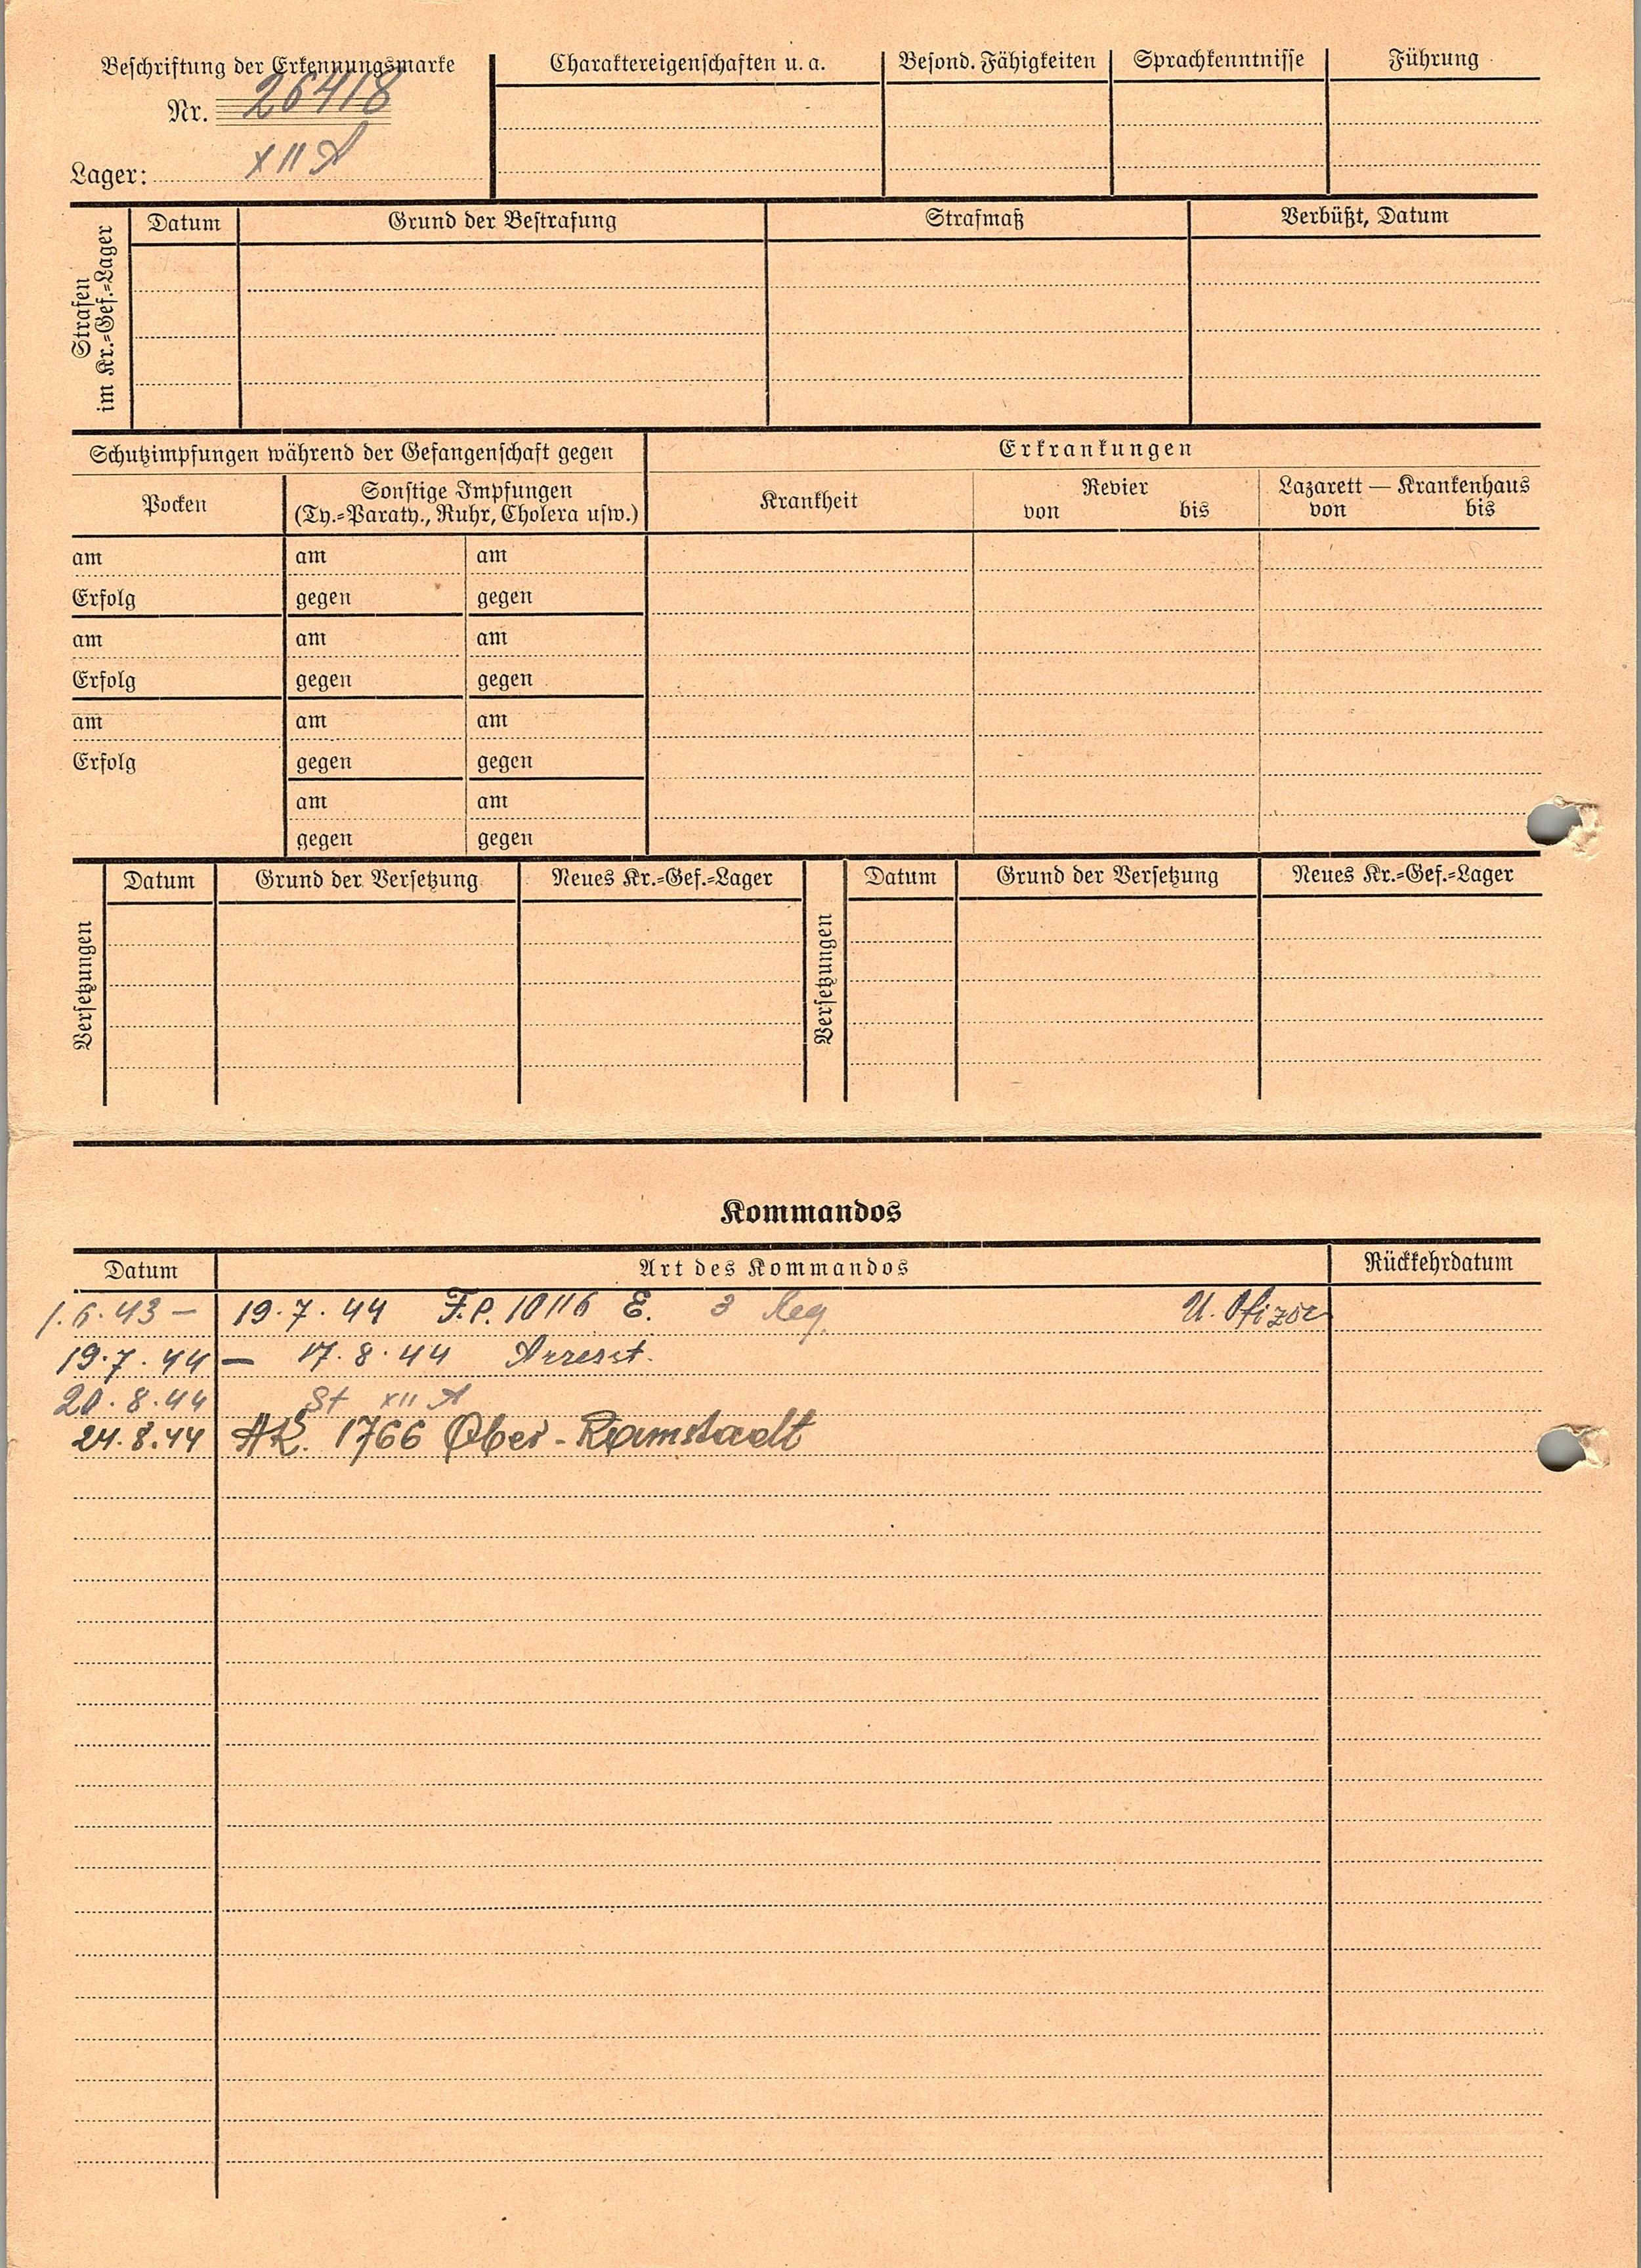 Beschriftung der Erkennungsmarke
Nr. 26418
Lager: XII A
Charaktereigenschaften u. a.
Besond. Fähigkeiten
Sprachkenntnisse
Führung
Strafen
im Kr.=Gef.=Lager
Datum
Grund der Bestrafung
Strafmaß
Verbüßt, Datum
Schutzimpfungen während der Gefangenschaft gegen
Erkrankungen
Pocken
Sonstige Impfungen
(Ty.=Paraty., Ruhr, Cholera usw.)
Krankheit
Revier
von bis
Lazarett — Krankenhaus
von bis
am am am
Erfolg gegen gegen
am am am
Erfolg gegen gegen
am am am
Erfolg gegen gegen
am am
gegen gegen
Versetzungen
Datum Grund der Versetzung Neues Kr.=Gef.=Lager
Versetzungen
Datum Grund der Versetzung Neues Kr.=Gef.=Lager
Kommandos
Datum Art des Kommandos Rückkehrdatum
1.6.43 — 19.7.44 F.P. 10116 E. 3 U. Ofizoe
19.7.44 — 17.8.44 Arresst.
20.8.44 St XII A
24.8.44 AK. 1766 Ober-Ramstadt